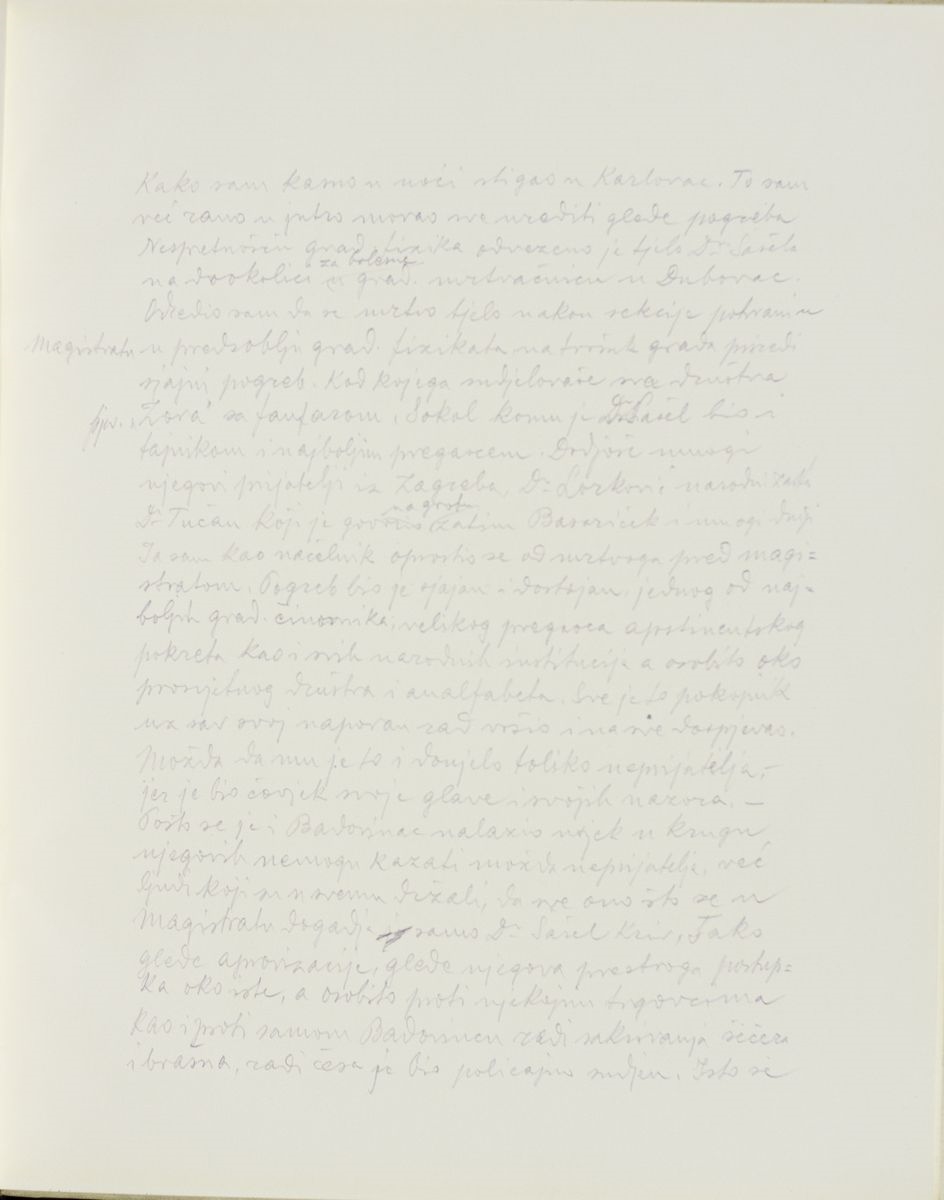 Kako sam kasno u noći stigao u Karlovac. To sam
već rano u jutro morao sve urediti glede pogreba
Nespretnošću grad. fizika odvezeno je tjelo Dr Šašela
za bolesne
na dookolici u grad. mrtvačnicu u Dubovac.
Odredio sam da se mrtvo tjelo nakon sekcije pohrani u
Magistratu u predsoblju grad. fizikata, na trošak grada priredi
sjajni pogreb. Kod kojega sudjelovaše sva društva
pjev. „Zora" sa fanfarom, Sokol komu je Dr Šašel bio i
tajnikom i najboljim pregaocem. Dodjoše mnogi
njegovi prijatelji iz Zagreba, Dr Lorković narodni zast.
na grobu
Dr Tućan koji je govorio zatim Basariček i mnogi drugi
Ja sam kao načelnik oprostio se od mrtvoga pred magi=
stratom. Pogreb bio je sjajan i dostojan jednog od naj-
boljih grad. činovnika, velikog pregaoca apstinentskog
pokreta kao i svih narodnih institucija a osobito oko
prosvjetnog društva i analfabeta. Sve je to pokojnik
uz sav svoj naporan rad vršio i na sve dospjevao.
Možda da mu je to i donjelo toliko neprijatelja,-
jer je bio čovjek svoje glave i svojih nazora. —
Pošto se je i Badovinac nalazio uvjek u krugu
njegovih nemogu kazati možda neprijatelja, već
ljudi koji su u svemu držali, da sve ono što se u
Magistratu dogadja je samo Dr Šašel kriv, Tako
glede aprovizacije, glede njegova prestroga postup=
ka oko iste, a osobito proti njekojim trgovcima
Kao i proti samom Badovincu radi sakrivanja šećera
i brašna, radi česa je bio policajno sudjen. Isto se